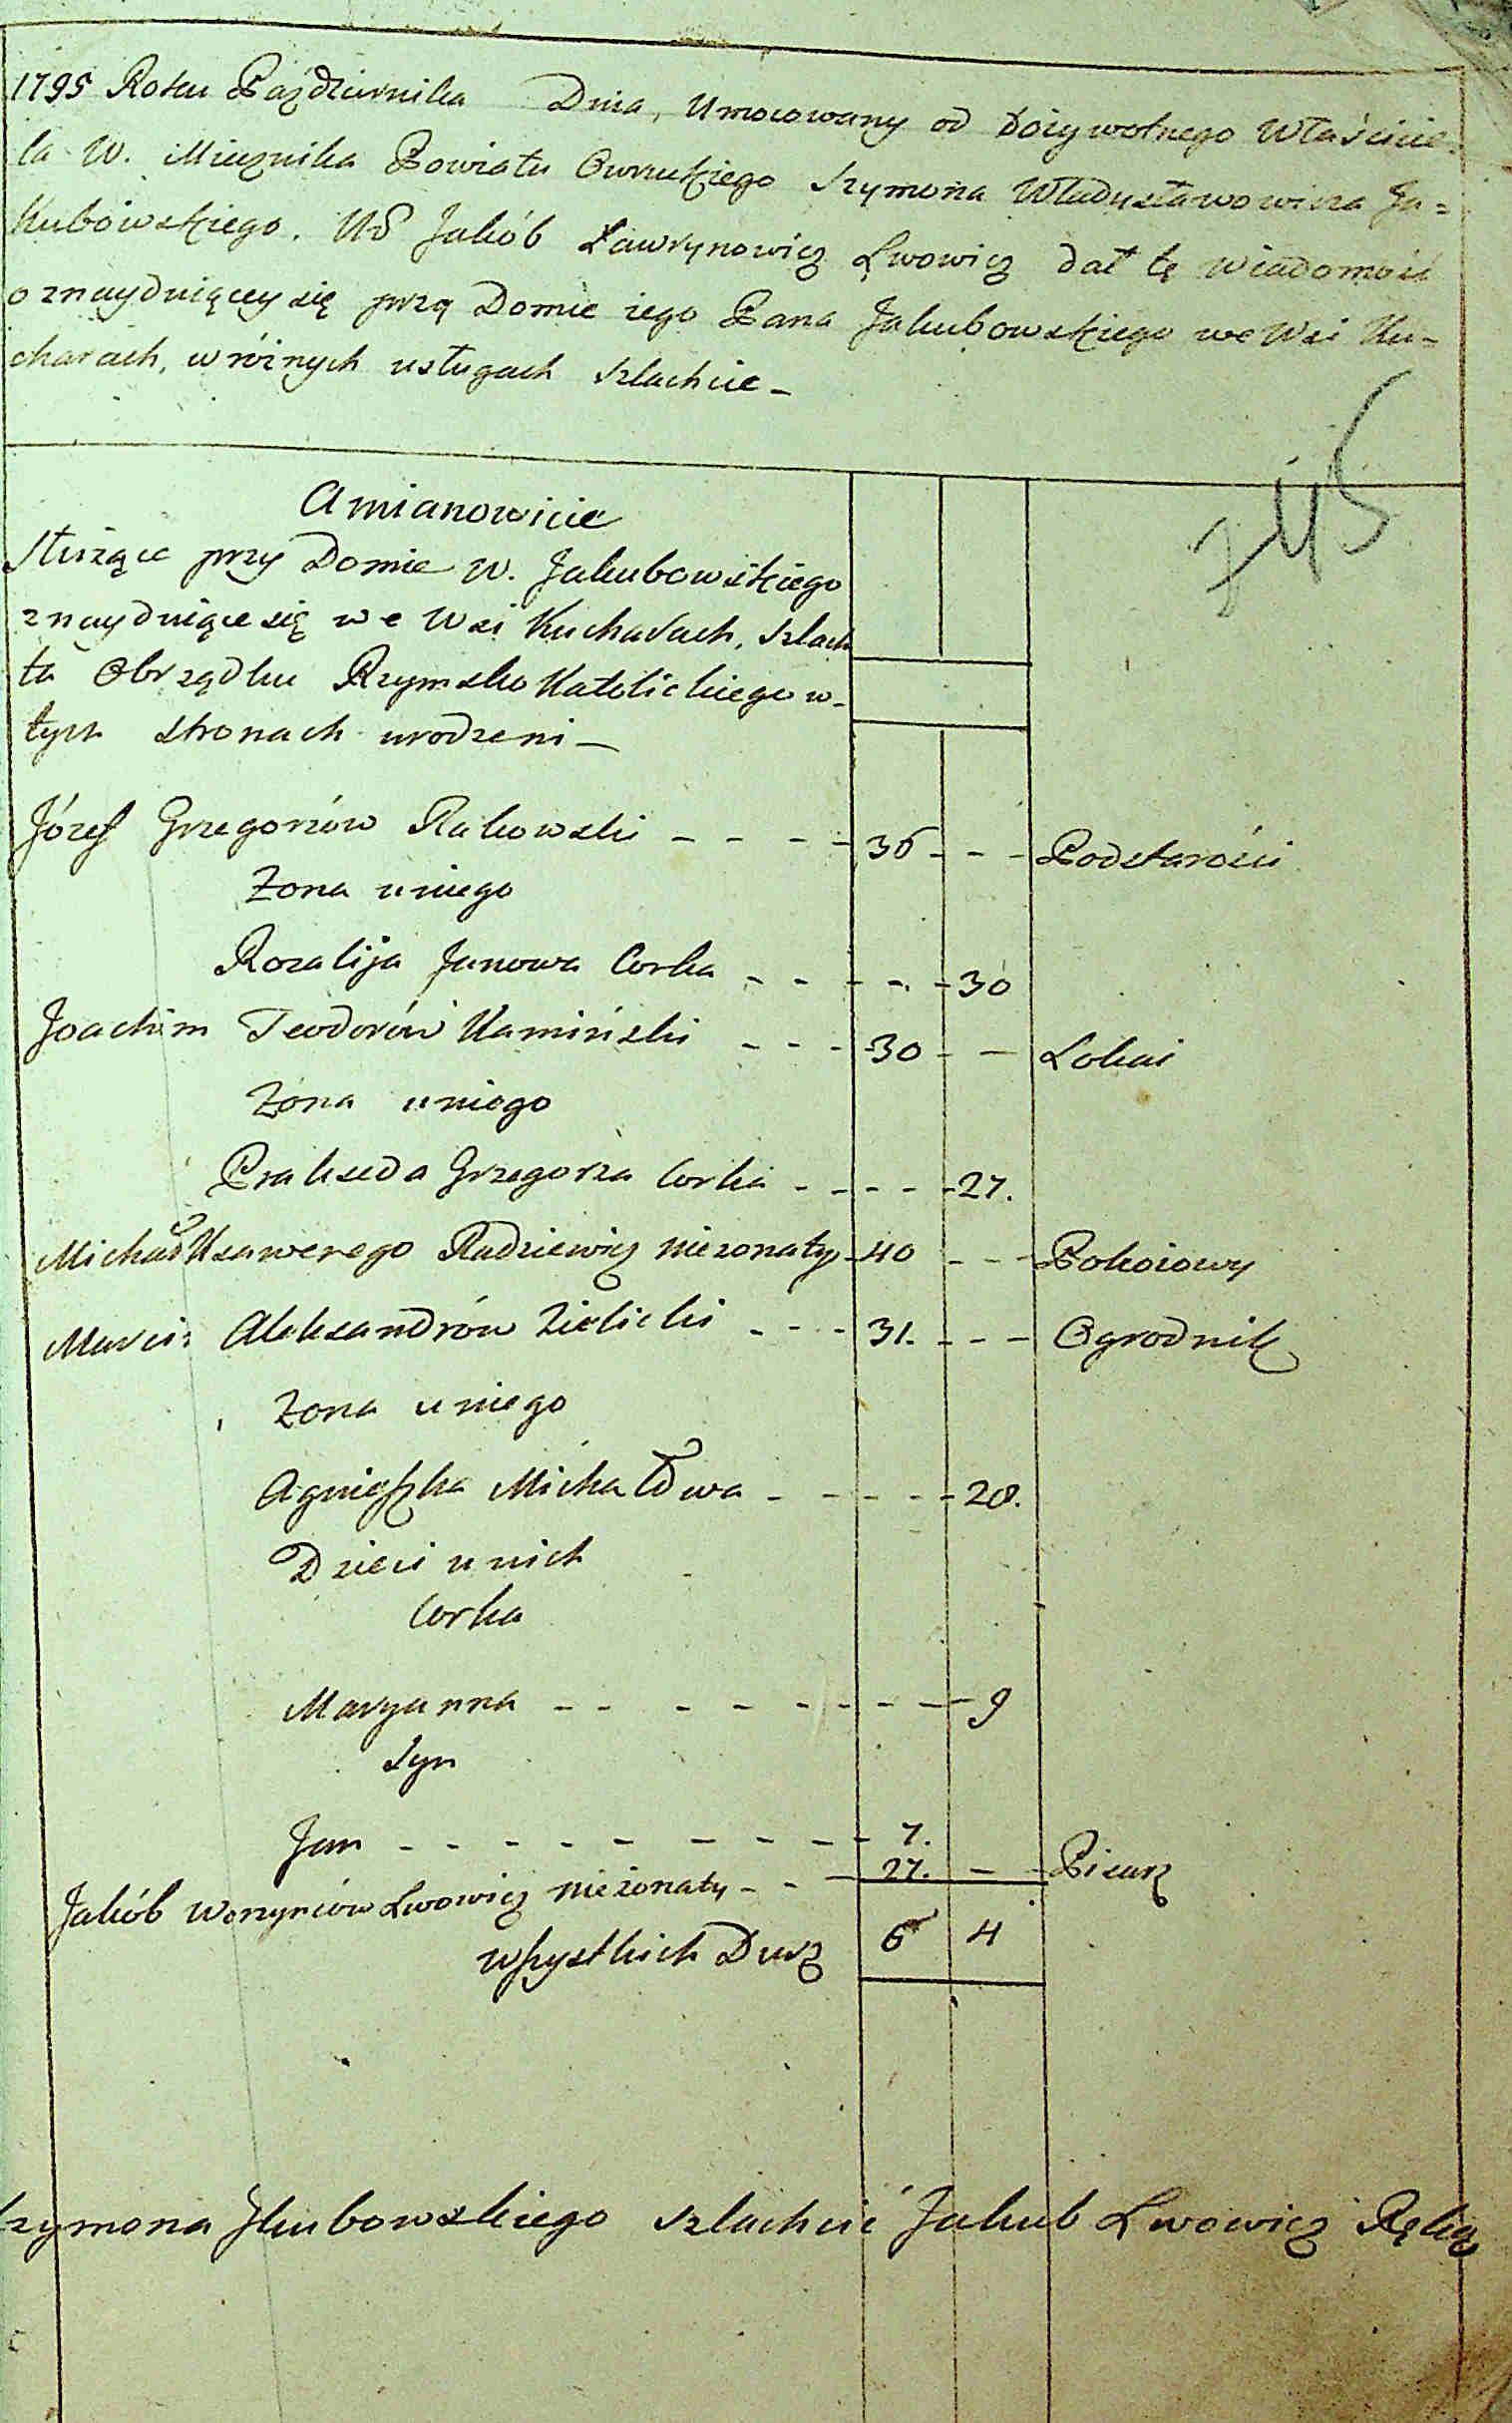 1795 Roku Października Dnia, Umocowany od Dożywotnego Właścicie-
la W. Miecznika Powiatu Owruckiego Szymona Władysławowicza Ja=
kubowskiego. UB Jakób Ławrynowicz Lwowicz dał tę wiadomość
o znayduiącey się przy Domie iego Pana Jakubowskiego we Wsi Ku=
charach, w różnych usługach szlachcie –
A mianowicie
Służące przy Domie W. Jakubowskiego
znayduiące się we Wsi Kucharach, szlach
ta Obrządku Rzymsko Katolickiego w-
tych stronach urodzeni –
Józef Grzegorzów Rakowski - - - - 36 - - - Podstarości
Żona u niego
Rozalija Janowa Corka - - - - - 30
Joachim Teodorów Kamiński - - - 30 - - Lokai
Żona u niego
Prakseda Grzegorza Corka - - - - - 27.
Michał Ksawerego Radziewicz nieżonaty - 40 - - - Pokoiowy
Marcin Aleksandrów Zielicki - - - - 31. - - - Ogrodnik
Żona u niego
Agnieszka Michałowa - - - - - 28.
Dzieci u nich
Corka
Maryanna - - - - - - - - - 9
Syn
Jan - - - - - - - - - - 7.
Jakób Wozyńców Lwowicz nieżonaty - - - 27. - - - Pisarz
Wszystkich Dusz 6 4
Szymona Jkubowskiego szlachcic Jakub Lwowicz Ręką